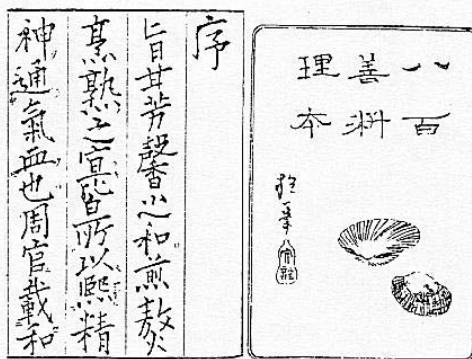 八百
善料
理本
序
旨甘芳馨之和煎熬
烹熟之宜皆所以熙精
神通氣血也周官載和